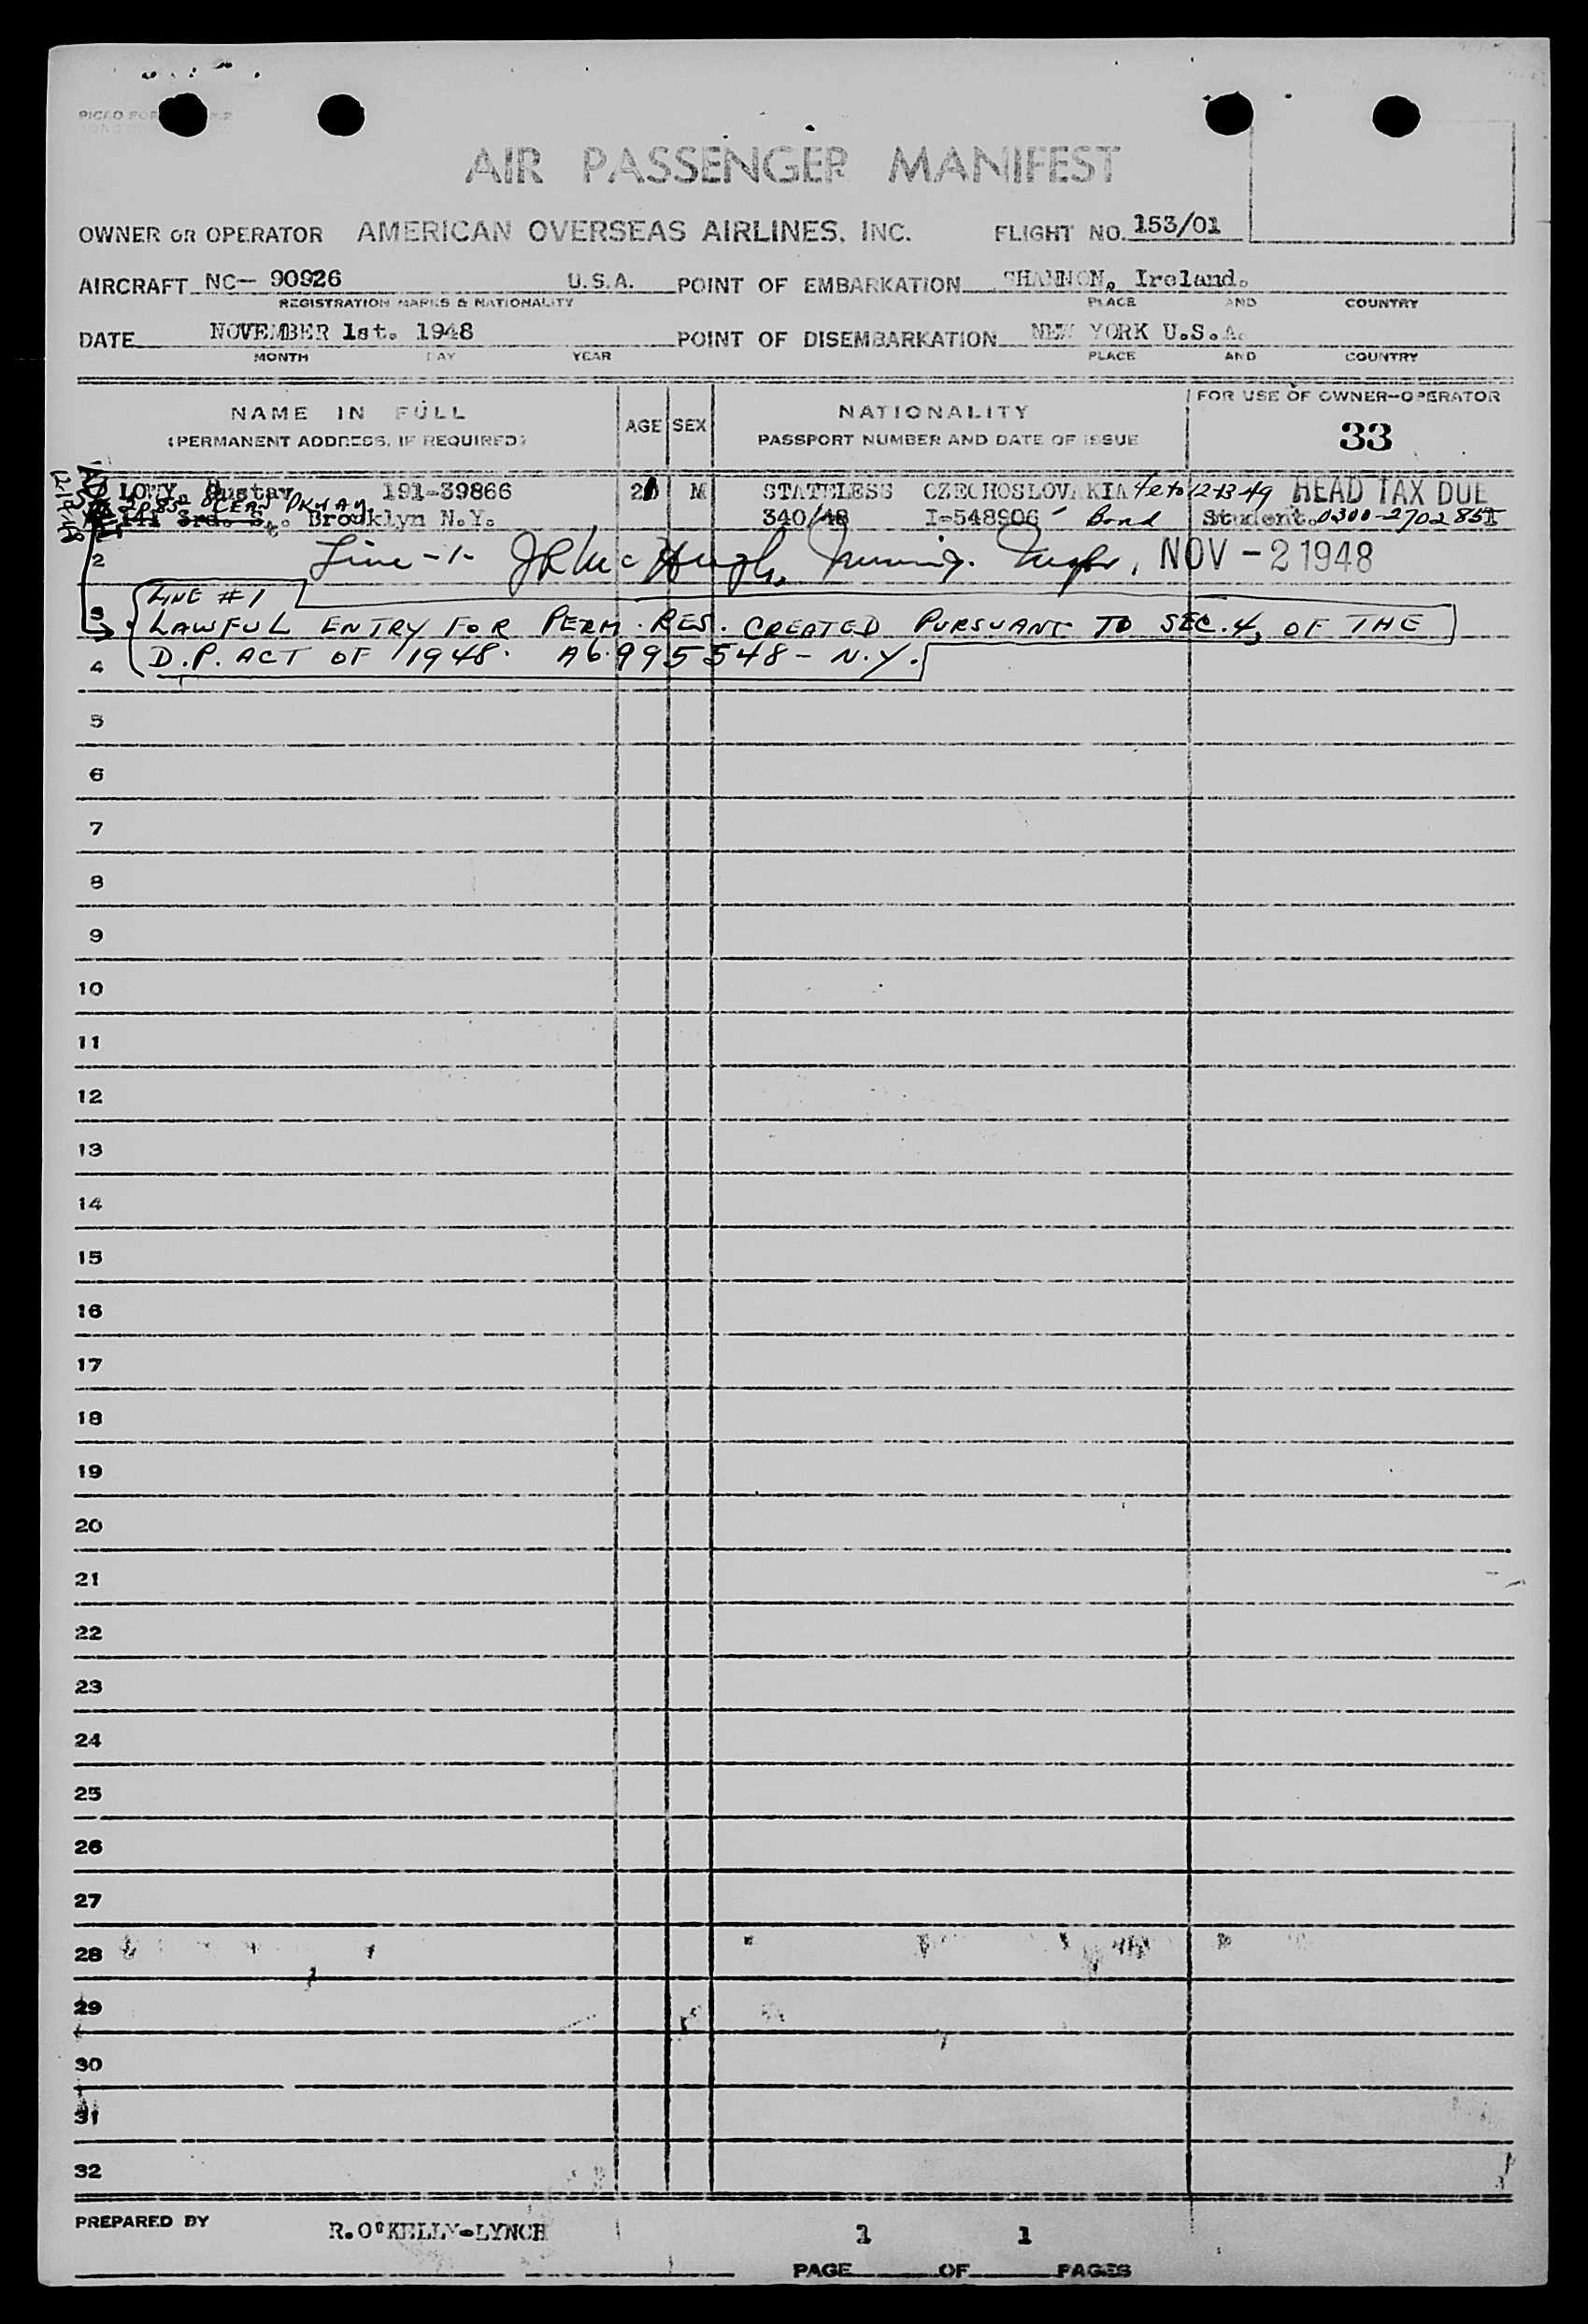 AIR PASSENGER MANIFEST
OWNER OR OPERATOR AMERICAN OVERSEAS AIRLINES, INC. FLIGHT NO. 153/01
AIRCRAFT NC- 90926 U.S.A. POINT OF EMBARKATION SHANNON, Ireland.
REGISTRATION MARKS & NATIONALITY PLACE AND COUNTRY
DATE NOVEMBER 1st. 1948 POINT OF DISEMBARKATION NEW YORK U.S.A.
MONTH DAY YEAR PLACE AND COUNTRY
NAME IN FULL AGE SEX NATIONALITY FOR USE OF OWNER-OPERATOR
(PERMANENT ADDRESS, IF REQUIRED) PASSPORT NUMBER AND DATE OF ISSUE 33
LOWY, Gustav 191-39866 M STATELESS CZECHOSLOVAKIA 4e to 12-13-49 HEAD TAX DUE
2085 OCEAN PKWAY
141 3rd. St. Brooklyn N.Y. 340/48 I-548906 - Bond Student. 0300-270285I
2 Line -1- JR McHugh, Immig. Inspr, NOV -2 1948
LINE #1
3 LAWFUL ENTRY FOR PERM. RES. CREATED PURSUANT TO SEC. 4, OF THE
4 D.P. ACT OF 1948. A6 995548 - N.Y.
5
6
7
8
9
10
11
12
13
14
15
16
17
18
19
20
21
22
23
24
25
26
27
28
29
30
31
32
PREPARED BY R.O'KELLY-LYNCH 1 1
PAGE OF PAGES